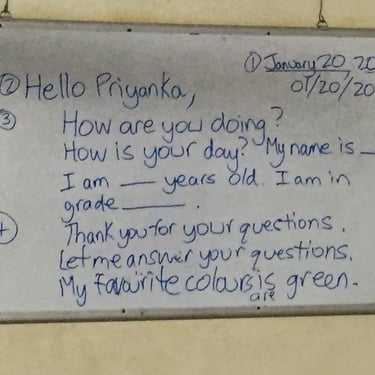 ① January 20, 20
01/20/20
② Hello Priyanka,
③ How are you doing?
How is your day? My name is __
I am ___ years old. I am in
grade ______.
Thank you for your questions.
Let me answer your questions.
My favourite colours is green.
are